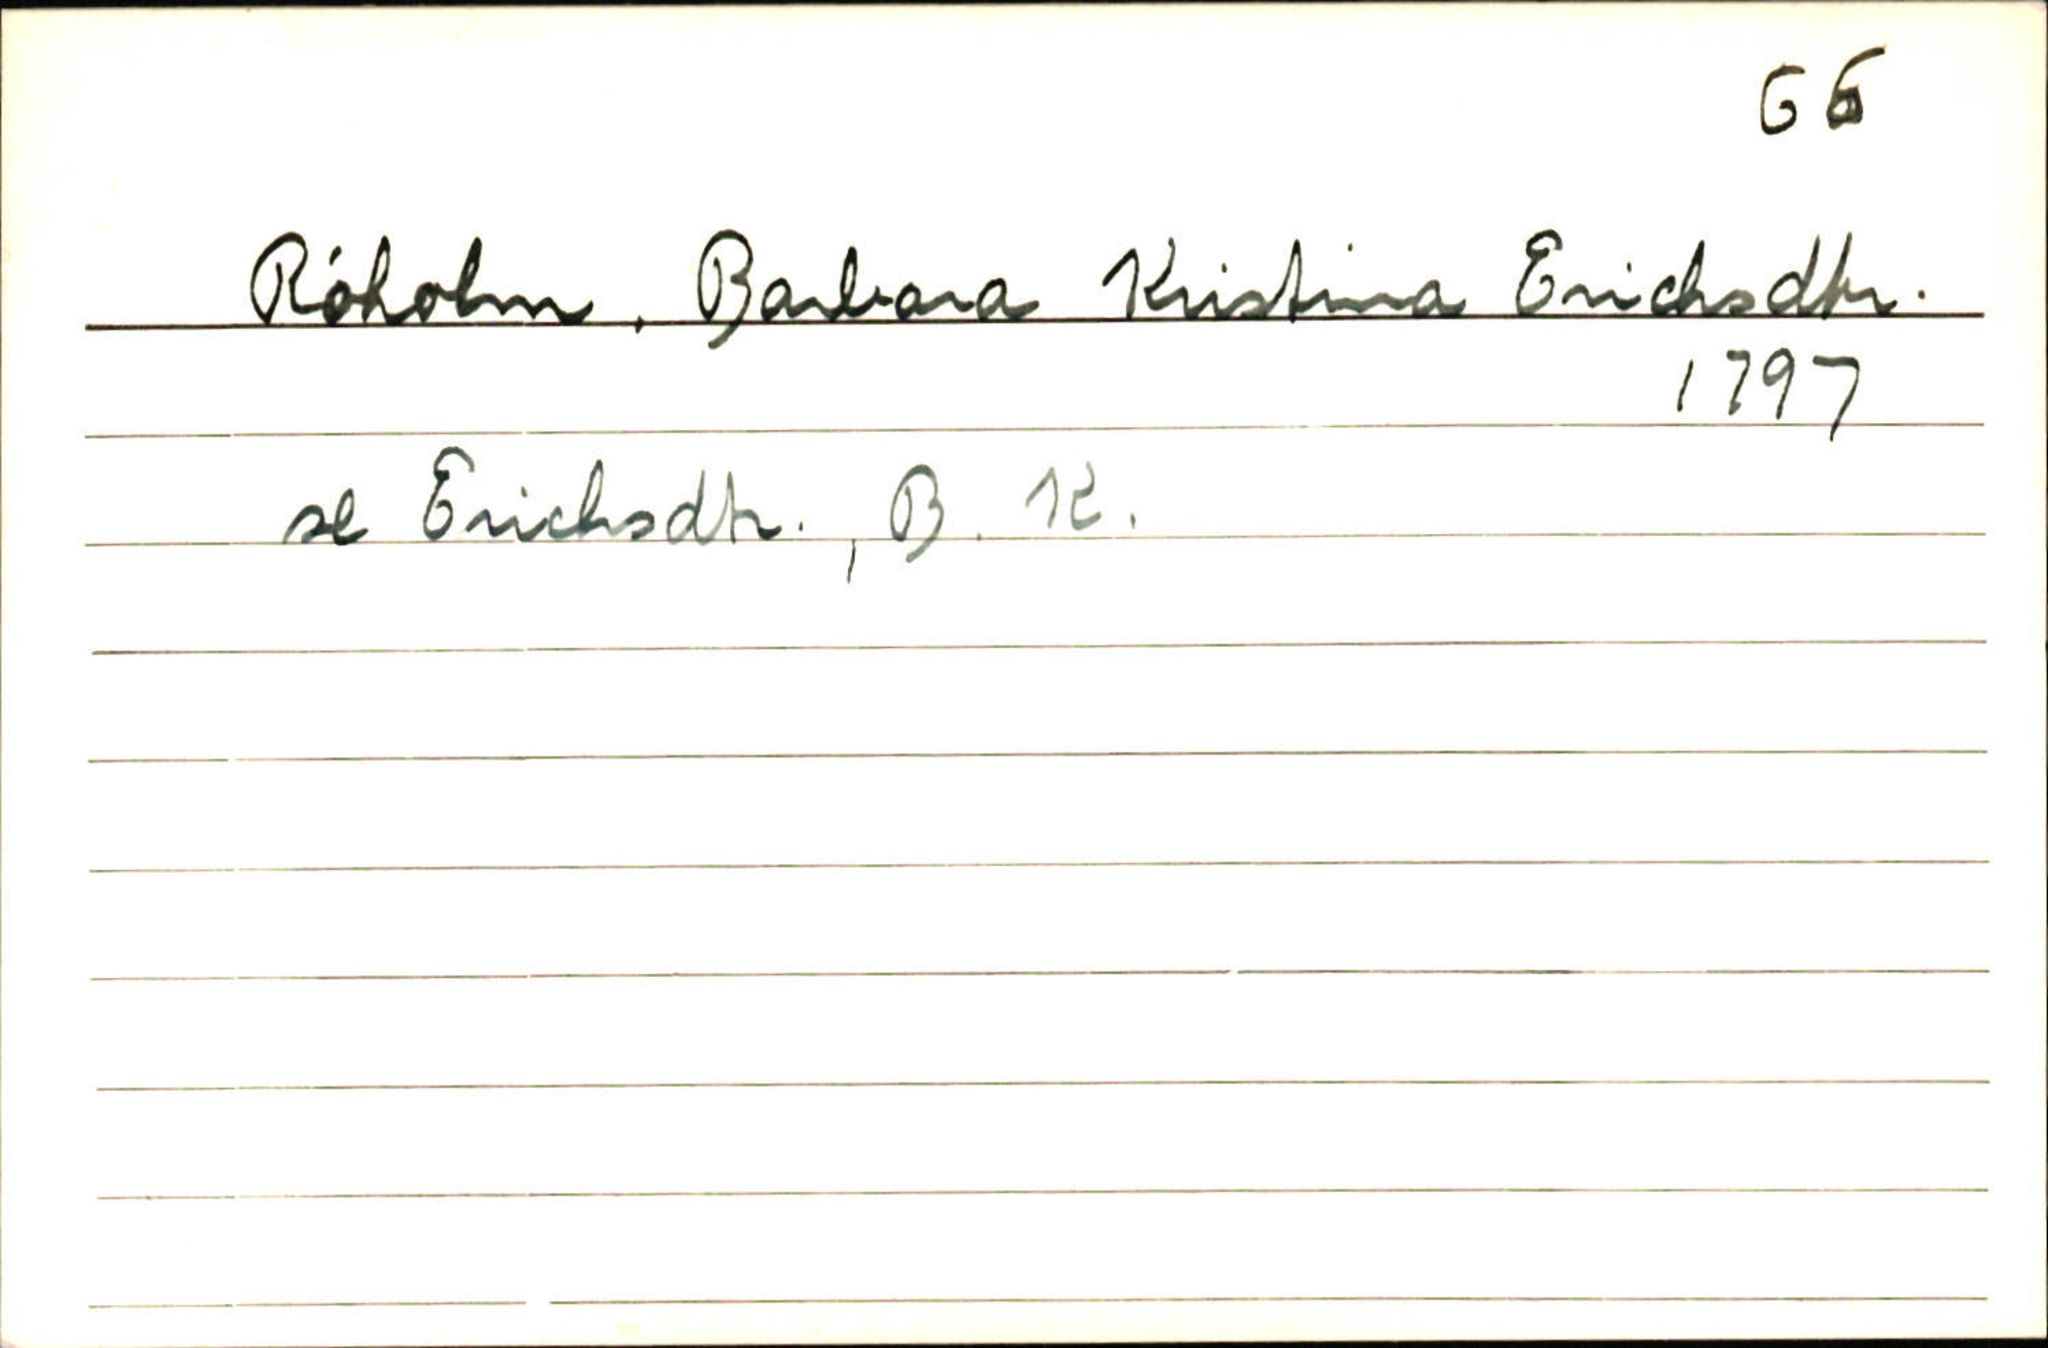 66
Róholm, Barbara Kristina Erichsdtr.
1797
se Erichsdtr., B. K.